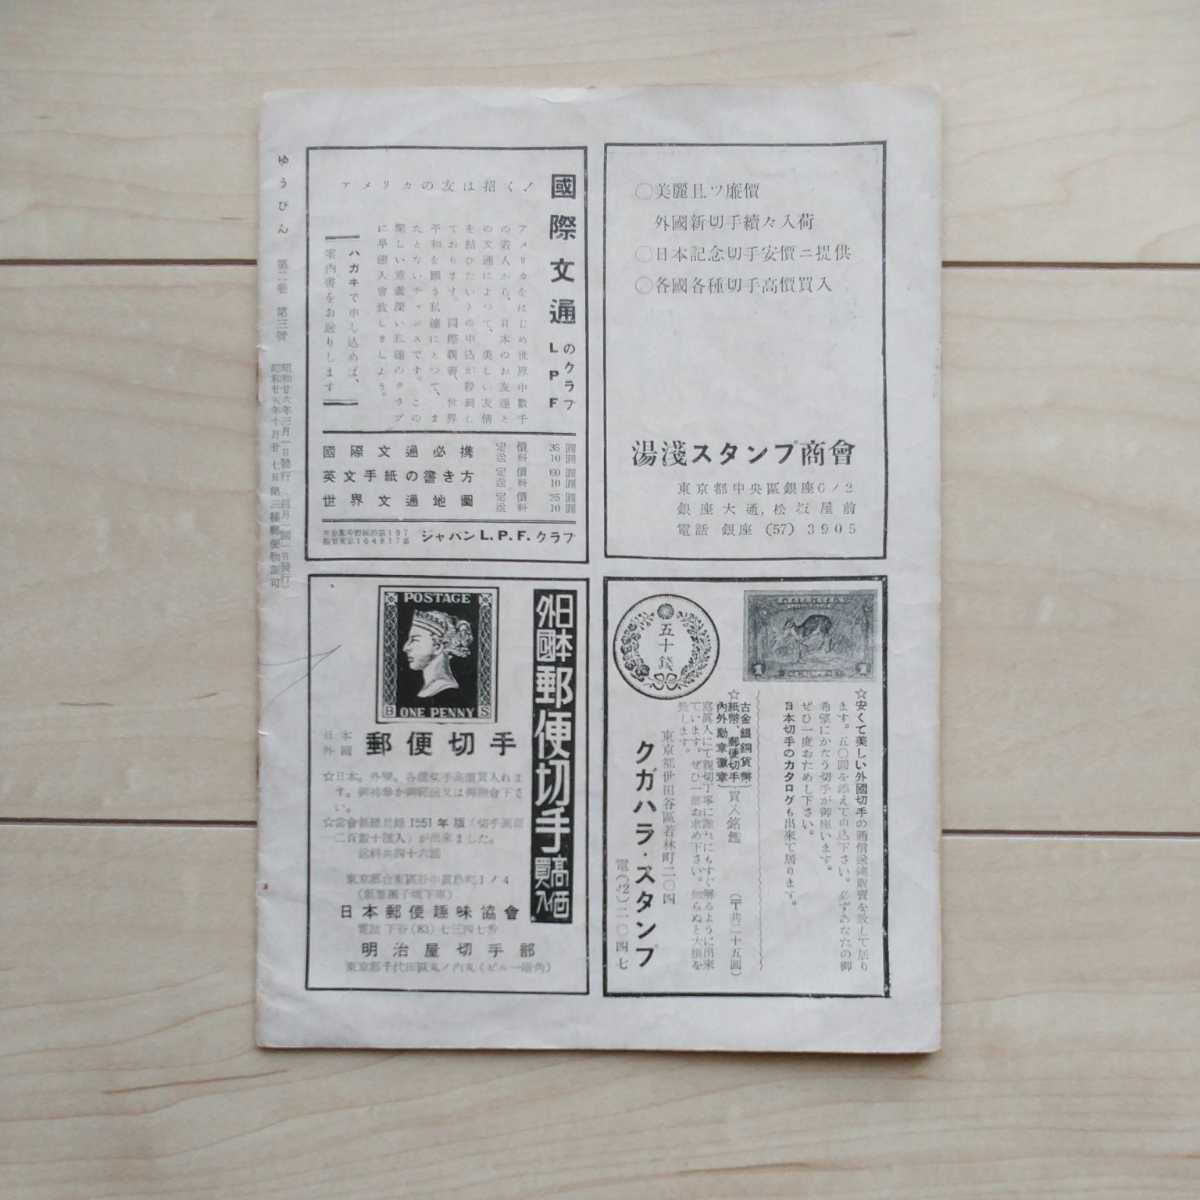 ○美麗且ツ廉價
外國新切手續々入荷
○日本記念切手安價ニ提供
○各國各種切手高價買入
湯淺スタンプ商會
東京都中央區銀座6ノ2
銀座大通,松坂屋前
電話 銀座 (57) 3905
國際文通のクラブ
LPF
アメリカの友は招く!
アメリカをはじめ世界中數千
の若人から、日本のお友達と
の文通によつて、美しい友情
を結びたいとの申込が殺到し
ております。國際親善、世界
平和を願う私達にとつて、ま
たとないチャンスです。この
樂しい意義深い私達のクラブ
に早速入會致しましよう。
ハガキで申し込めば、
案内書をお送りします
國際文通必携 定價 35圓 送料 10圓
英文手紙の書き方 定價 60圓 送料 10圓
世界文通地圖 定價 25圓 送料 10圓
ジャパン L.P.F. クラブ
ゆうびん 第二巻 第三號
昭和廿六年三月一日發行(毎月一回一日發行)
五十錢
1
☆安くて美しい外國切手の通信販賣を致して居り
ます。五〇圓を添えて申込下さい。必ずあなたの御
希望にかなう切手が御座います。
ぜひ一度おためし下さい。
日本切手のカタログも出來て居ります。
☆古金銀銅貨幣
紙幣、郵便切手
内外勳章徽章
買入銘鑑
(〒共二十五圓)
寫眞入にて親切丁寧に誰れにもすぐ解るように出來
ています。ぜひ一部お求め下さい。知らぬと大損を
致します。
東京都世田谷區若林町二〇四
クガハラ・スタンプ
電(42)二〇四七
日本
外國
郵便切手
高価
買入
POSTAGE
B ONE PENNY S
日本
外國
郵便切手
☆日本。外國。各種切手高價買入れま
す。
い。
1951年版(切手
二百數十種入)が出來ました。
送料共四十六圓
日本郵便趣味協會
電話 下谷(83)七三四七番
明治屋切手部
東京都千代田區丸ノ内丸(ビル一階角)